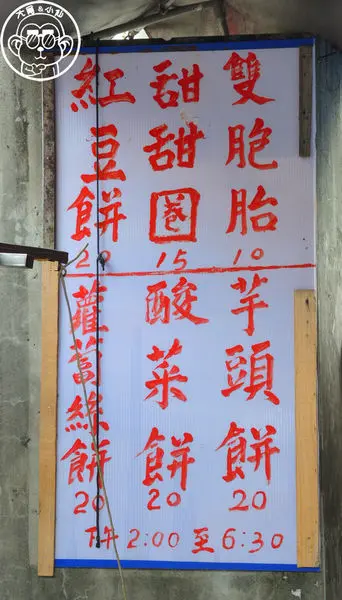 雙胞胎
10
甜甜圈
15
紅豆餅
20
芋頭餅
20
酸菜餅
20
蘿蔔絲餅
20
下午2:00至6:30